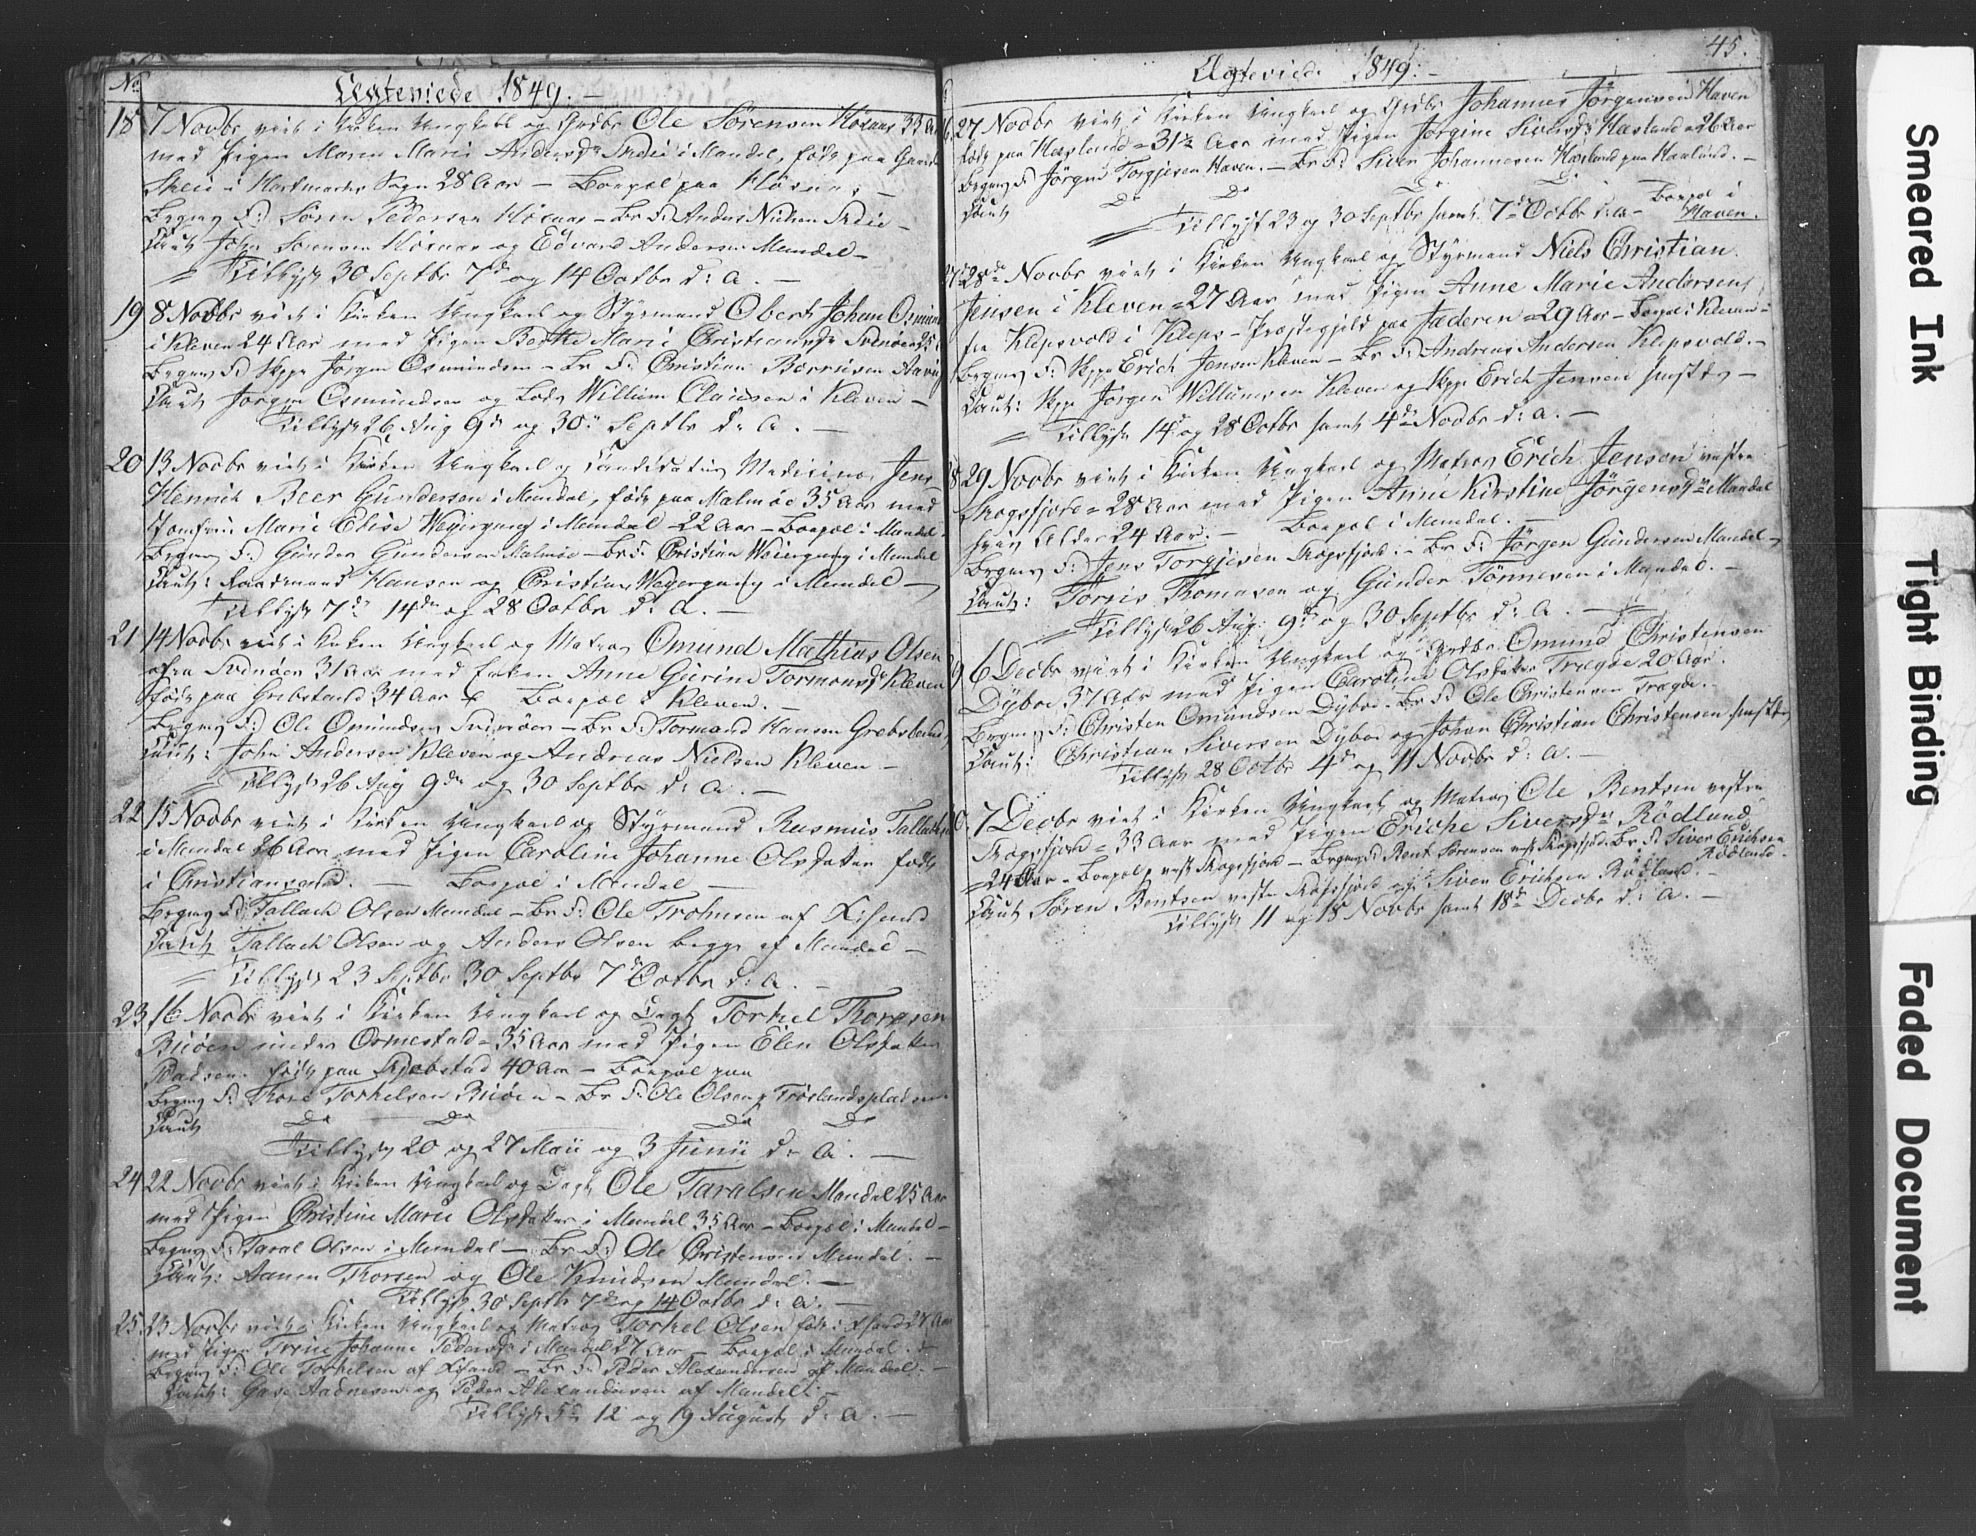 No
Ægteviede 1849.
18 7 Novbr viet i Kirken Ungkarl og Grdbr Ole Sørensen Høxaas 33 Aar
med Pigen Maren Marie Andersdr Skeie i Mandal, født paa
Skeie i Hartmarks Sogn 28 Aar — Boepæl paa Høxaas —
Begmg F: Søren Pedersen Høxaas — Br F: Anders Nielsen Skeie —
Caut John Sørensen Høxaas og Edvard Andersen Mandal —
Tillyst 30 Septbr 7de og 14 Octbr d: A. —
19 8 Novbr viet i Kirken Ungkarl og Styrmand Obert Johan
i Kleven 24 Aar med Pigen Berthe Marie Christiansdr Svinøen
Begmg F: Skpp Jørgen Osmundsen — Br F: Christian Berntsen
Caut Jørgen Osmundsen og Lods Willum Clausen i Kleven —
Tillyst 26 Aug 9de og 30 Septbr d: A. —
20 13 Novbr viet i Kirken Ungkarl og Candidatus Medicinæ Jens
Henrich Beer Gundersen i Mandal, født paa Malmøe 35 Aar med
Jomfru Marie Elise Weiergang i Mandal 22 Aar — Boepæl i Mandal
Begmg F: Gunder Gundersen Malmøe — Br F: Christian Weiergang i Mandal
Caut: Raadmand Hansen og Christian Weiergang i Mandal —
Tillyst 7de 14de og 28 Octbr d: A. —
21 14 Novbr viet i Kirken Ungkarl og Matros Omund Mathias Olsen
fra Svinøen 31 Aar med Enken Anne Gurine Tormodsdr Kleven
født paa Grebstad 34 Aar — Boepæl i Kleven. —
Begmg F: Ole Omundsen Svinøen — Br F: Tormod Hansen
Caut: John Andersen Kleven og Andreas Nielsen Kleven —
Tillyst 26 Aug 9de og 30 Septbr d: A. —
22 15 Novbr viet i Kirken Ungkarl og Styrmand Rasmus
i Mandal 26 Aar med Pigen Caroline Johanne Olsdatter født
i Christiansand. — Boepæl i Mandal —
Begmg F: Tallach Olsen Mandal — Br F: Ole af Xstsand
Caut Tallach Olsen og Anders Olsen begge af Mandal —
Tillyst 23 Septbr 30 Septbr 7de Octbr d: A. —
23 16 Novbr viet i Kirken Ungkarl og Torkel Thoresen
Buøen under Ormestad 35 Aar med Pigen Elen Olsdatter
født paa 40 Aar — Boepæl paa
Begmg F: Thore Torkelsen Buøen — Br F: Ole Olsen
Caut Do Do Do Do
Tillyst 20 og 27 Maii og 3 Junii d: A. —
24 22 Novbr viet i Kirken Ungkarl og Ole Taralsen Mandal 25 Aar
med Pigen Christine Marie Olsdatter i Mandal 35 Aar — Boepæl i Mandal —
Begmg F: Taral Olsen i Mandal — Br F: Ole Christensen Mandal. —
Caut: Aanen Thorsen og Ole Knudsen Mandal. —
Tillyst 30 Septbr 7de og 14 Octbr d: A. —
25 23 Novbr viet i Kirken Ungkarl og Matros Torkel Olsen født i Xsand 27 Aar
med Pigen Trine Johanne Pedersdr i Mandal 27 Aar — Boepæl i Mandal. —
Begmg F: Ole Torkelsen af Xsand — Br F: Peder Alexandersen af Mandal. —
Caut: Aadnesen og Peder Alexandersen af Mandal. —
Tillyst 5te 12 og 19 August d: A. —
Ægteviede 1849. —
45.
27 Novbr viet i Kirken Ungkarl og Grdbr Johannes Jørgensen Haven
født paa Hasland 31½ Aar med Pigen Jørgine Siversdr Hasland 26 Aar
Begmg F: Jørgen Torgjesen Haven. — Br F: Siver Johannesen Hasland paa Hasland. —
Caut Do Do Do Do Boepæl i
Tillyst 23 og 30 Septbr samt 7de Octbr d: A — Haven.
28de Novbr viet i Kirken Ungkarl og Styrmand Niels Christian
Jensen i Kleven 27 Aar med Pigen Anne Marie Andersdr
fra Klepsvold i Kleps Præstegjeld paa Jæderen 29 Aar — Boepæl i Kleven —
Begmg F: Skpp Erich Jensen Kleven — Br F: Andreas Andersen Klepsvold. —
Caut: Skpp Jørgen Willumsen Kleven og Skpp Erich Jensen
Tillyst 14de og 28 Octbr samt 4de Novbr d: A. —
29 Novbr viet i Kirken Ungkarl og Matros Erich Jensen vestre
Skogsfjord 28 Aar med Pigen Anne Kirstine Jørgensdr Mandal
hvis Alder 24 Aar. — Boepæl i Mandal. —
Begmg F: Jens Torgjesen Skogsfjord. — Br F: Jørgen Gundersen Mandal —
Caut: Torgis Thomasen og Gunder Tønnesen i Mandal. —
Tillyst 26 Aug. 9de og 30 Septbr d: A. —
6 Decbr viet i Kirken Ungkarl og Grdbr. Omund Christensen
Dybøe 37 Aar med Pigen Caroline Olsdatter Tregde 20 Aar.
Begmg F: Christen Omundsen Dybøe. Br F: Ole Christensen Tregde. —
Caut: Christian Siversen Dybøe og Johan Christian Christensen
Tillyst 28 Octbr 4de og 11 Novbr d: A. —
7 Decbr viet i Kirken Ungkarl og Matros Ole Bentsen vestre
Skogsfjord 33 Aar med Pigen Eriche Siversdr Rødland
24 Aar — Boepæl p vest Skogsfjord — Begmg F: Bent Sørensen vest Skogsfjord. Br F: Siver Erichsen Rødland. —
Caut Søren Bentsen vestre Skogsfjord og Siver Erichsen Rødland. —
Tillyst 11 og 18 Novbr samt 18de Decbr d: A. —
Smeared Ink
Tight Binding
Faded Document